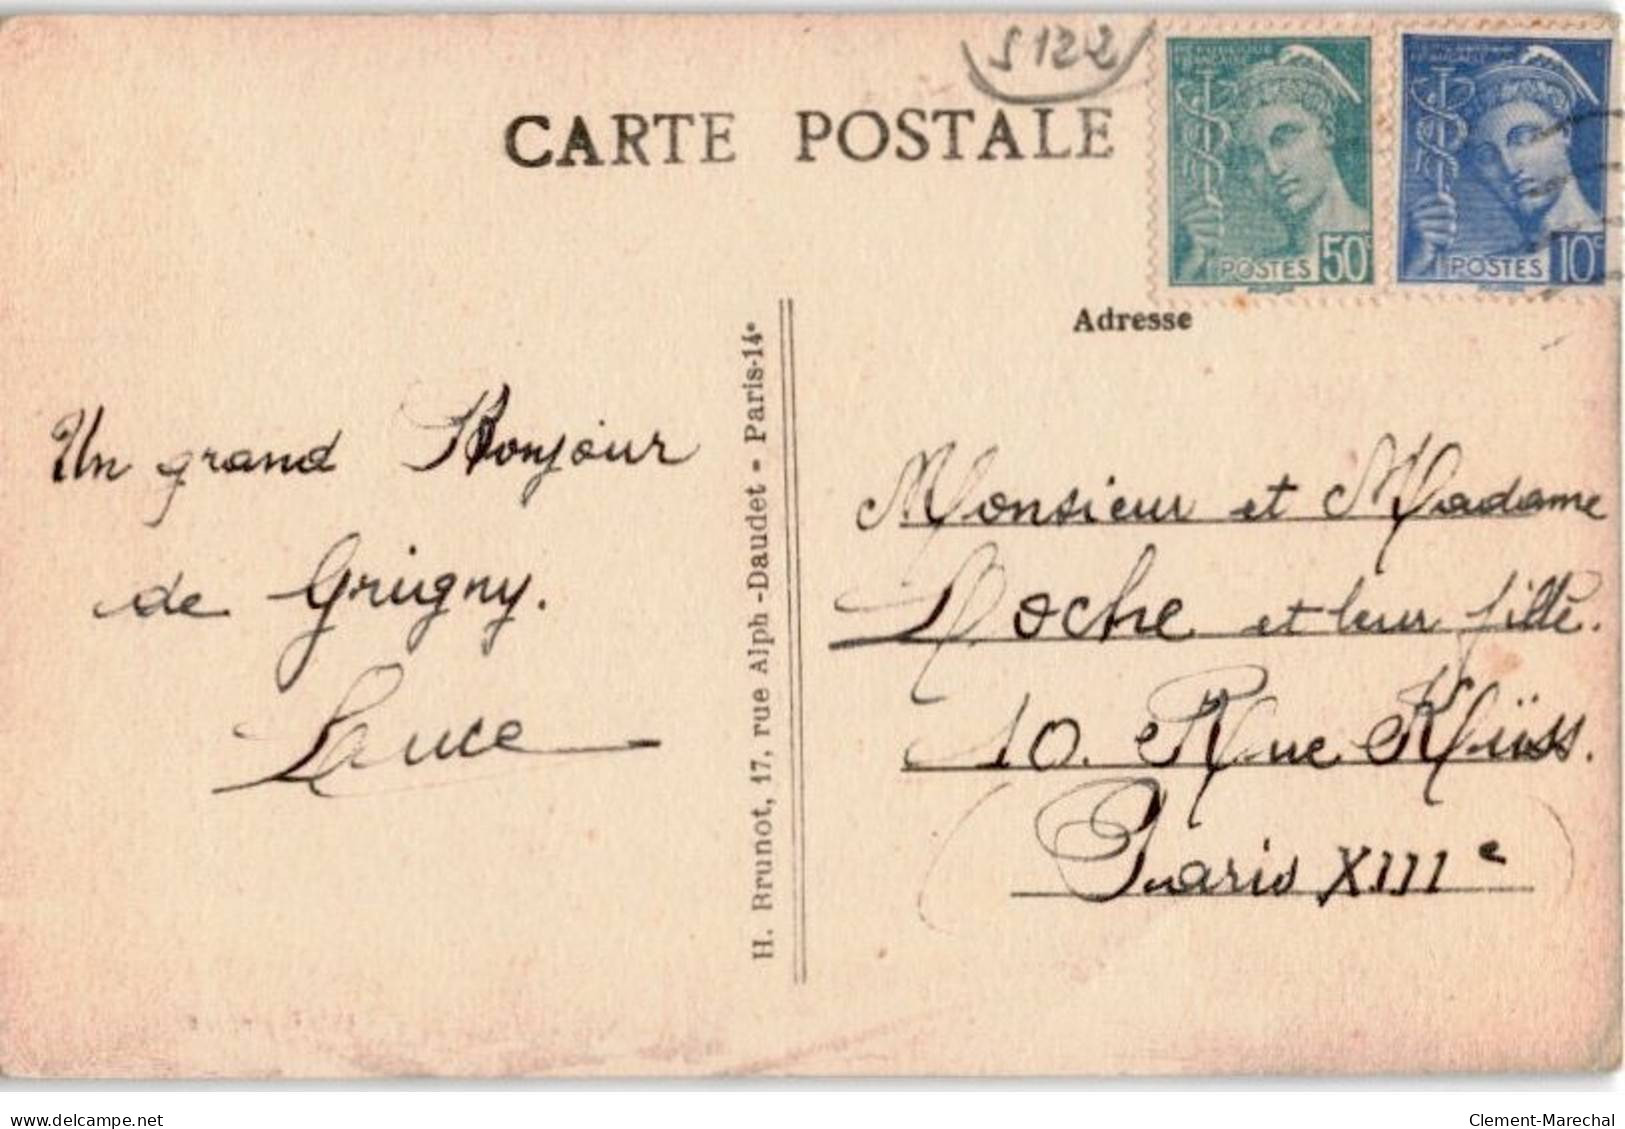 S 122
CARTE POSTALE
RÉPUBLIQUE
FRANÇAISE
POSTES 50c
POSTES 10c
Adresse
Un grand Bonjour
de Grigny.
H. Brunot, 17, rue Alph-Daudet - Paris-14e
Monsieur et Madame
Roche et leur fille.
10. Rue Küss.
Paris XIIIe
delcampe.net
Clement-Marechal